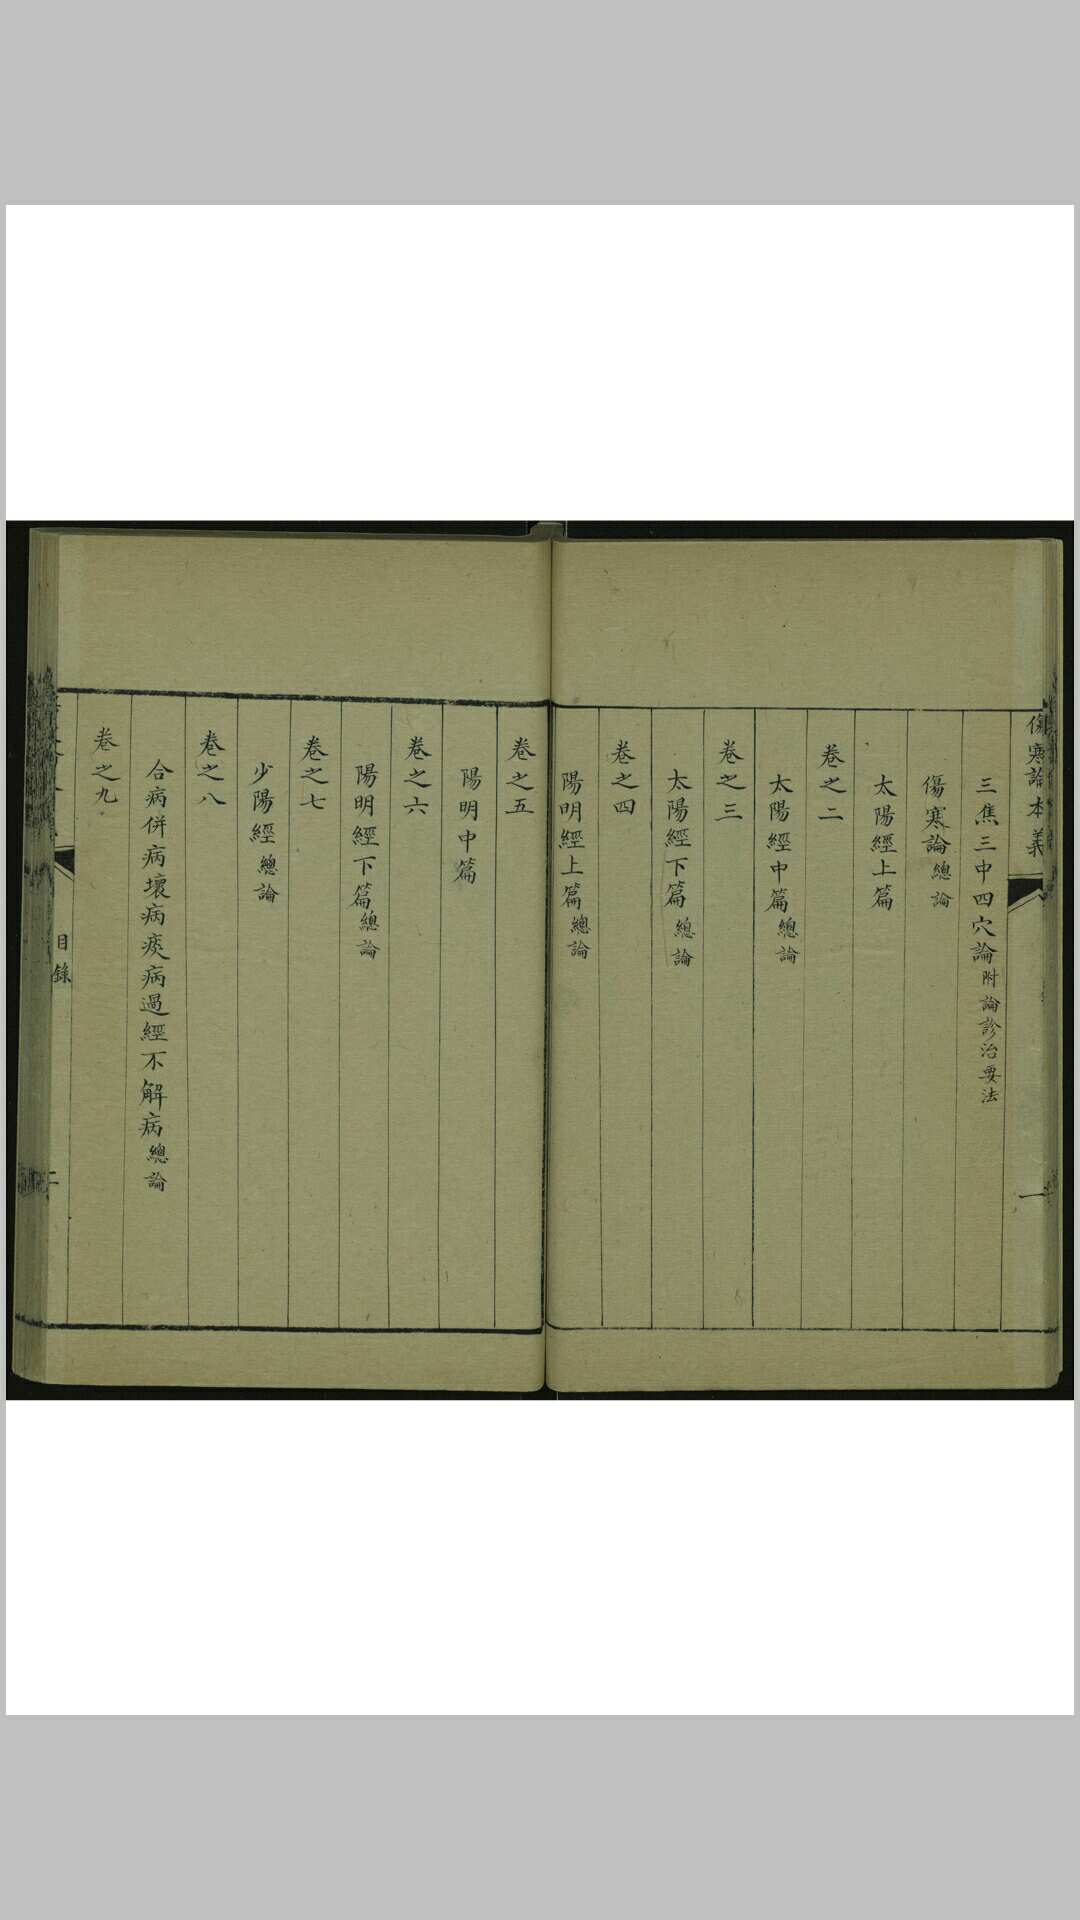 傷寒論本義
一
三焦三中四穴論附論診治要法
傷寒論總論
太陽經上篇
卷之二
太陽經中篇總論
卷之三
太陽經下篇總論
卷之四
陽明經上篇總論
卷之五
陽明中篇
卷之六
陽明經下篇總論
卷之七
少陽經總論
卷之八
合病併病壞病痰病過經不解病總論
卷之九
目錄
二